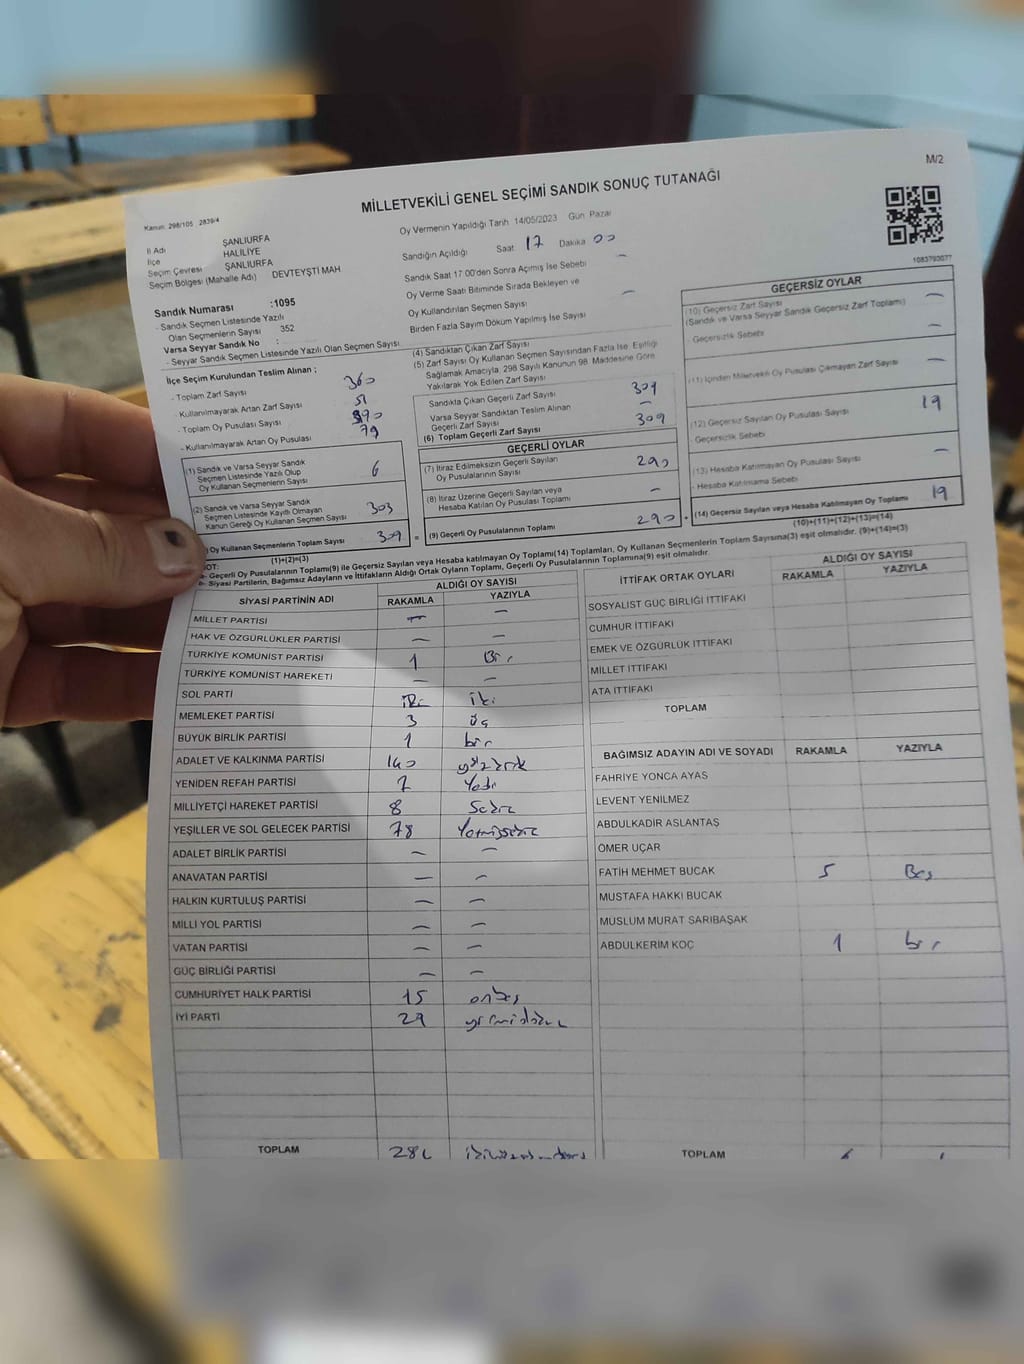 M/2
MİLLETVEKİLİ GENEL SEÇİMİ SANDIK SONUÇ TUTANAĞI
Kanun: 298/105 2839/4
İl Adı ŞANLIURFA
İlçe HALİLİYE
Seçim Çevresi ŞANLIURFA
Seçim Bölgesi (Mahalle Adı) DEVTEYŞTİ MAH
Sandık Numarası :1095
- Sandık Seçmen Listesinde Yazılı
Olan Seçmenlerin Sayısı 352
Varsa Seyyar Sandık No :
- Seyyar Sandık Seçmen Listesinde Yazılı Olan Seçmen Sayısı
Oy Vermenin Yapıldığı Tarih 14/05/2023 Gün Pazar
Sandığın Açıldığı Saat 17 Dakika 00
Sandık Saat 17.00'den Sonra Açımış İse Sebebi —
Oy Verme Saati Bitiminde Sırada Bekleyen ve
Oy Kullandırılan Seçmen Sayısı —
Birden Fazla Sayım Döküm Yapılmış İse Sayısı
1083793077
İlçe Seçim Kurulundan Teslim Alınan ;
- Toplam Zarf Sayısı 360
- Kullanılmayarak Artan Zarf Sayısı 51
- Toplam Oy Pusulası Sayısı 390
- Kullanılmayarak Artan Oy Pusulası 79
(1) Sandık ve Varsa Seyyar Sandık
Seçmen Listesinde Yazılı Olup
Oy Kullanan Seçmenlerin Sayısı 6
(2) Sandık ve Varsa Seyyar Sandık
Seçmen Listesinde Kayıtlı Olmayan
Kanun Gereği Oy Kullanan Seçmen Sayısı 303
) Oy Kullanan Seçmenlerin Toplam Sayısı 309
(1)+(2)=(3)
(4) Sandıktan Çıkan Zarf Sayısı
(5) Zarf Sayısı Oy Kullanan Seçmen Sayısından Fazla İse, Eşitliği
Sağlamak Amacıyla, 298 Sayılı Kanunun 98. Maddesine Göre
Yakılarak Yok Edilen Zarf Sayısı
Sandıkta Çıkan Geçerli Zarf Sayısı 309
Varsa Seyyar Sandıktan Teslim Alınan
Geçerli Zarf Sayısı —
(6) Toplam Geçerli Zarf Sayısı 309
GEÇERLİ OYLAR
(7) İtiraz Edilmeksizin Geçerli Sayılan
Oy Pusulalarının Sayısı 290
(8) İtiraz Üzerine Geçerli Sayılan veya
Hesaba Katılan Oy Pusulası Toplamı —
= (9) Geçerli Oy Pusulalarının Toplamı 290 +
GEÇERSİZ OYLAR
(10) Geçersiz Zarf Sayısı —
(Sandık ve Varsa Seyyar Sandık Geçersiz Zarf Toplamı)
- Geçersizlik Sebebi —
(11) İçinden Milletvekili Oy Pusulası Çıkmayan Zarf Sayısı —
(12) Geçersiz Sayılan Oy Pusulası Sayısı 19
- Geçersizlik Sebebi
(13) Hesaba Katılmayan Oy Pusulası Sayısı —
- Hesaba Katılmama Sebebi
(14) Geçersiz Sayılan veya Hesaba Katılmayan Oy Toplamı 19
(10)+(11)+(12)+(13)=(14)
NOT:
a- Geçerli Oy Pusulalarının Toplamı(9) ile Geçersiz Sayılan veya Hesaba katılmayan Oy Toplamı(14) Toplamları, Oy Kullanan Seçmenlerin Toplam Sayısına(3) eşit olmalıdır. (9)+(14)=(3)
b- Siyasi Partilerin, Bağımsız Adayların ve İttifakların Aldığı Ortak Oyların Toplamı, Geçerli Oy Pusulalarının Toplamına(9) eşit olmalıdır.
SİYASİ PARTİNİN ADI ALDIĞI OY SAYISI
RAKAMLA YAZIYLA
MİLLET PARTİSİ — —
HAK VE ÖZGÜRLÜKLER PARTİSİ — —
TÜRKİYE KOMÜNİST PARTİSİ 1 Bir
TÜRKİYE KOMÜNİST HAREKETİ — —
SOL PARTİ iki iki
MEMLEKET PARTİSİ 3 üç
BÜYÜK BİRLİK PARTİSİ 1 bir
ADALET VE KALKINMA PARTİSİ 140 yüzkırk
YENİDEN REFAH PARTİSİ 7 Yedi
MİLLİYETÇİ HAREKET PARTİSİ 8 Sekiz
YEŞİLLER VE SOL GELECEK PARTİSİ 78 Yetmişsekiz
ADALET BİRLİK PARTİSİ — —
ANAVATAN PARTİSİ — —
HALKIN KURTULUŞ PARTİSİ — —
MİLLİ YOL PARTİSİ — —
VATAN PARTİSİ — —
GÜÇ BİRLİĞİ PARTİSİ — —
CUMHURİYET HALK PARTİSİ 15 onbeş
İYİ PARTİ 29 yirmidokuz
TOPLAM
İTTİFAK ORTAK OYLARI ALDIĞI OY SAYISI
RAKAMLA YAZIYLA
SOSYALIST GÜÇ BİRLİĞİ İTTİFAKI
CUMHUR İTTİFAKI
EMEK VE ÖZGÜRLÜK İTTİFAKI
MİLLET İTTİFAKI
ATA İTTİFAKI
TOPLAM
BAĞIMSIZ ADAYIN ADI VE SOYADI RAKAMLA YAZIYLA
FAHRİYE YONCA AYAS
LEVENT YENİLMEZ
ABDULKADİR ASLANTAŞ
ÖMER UÇAR
FATİH MEHMET BUCAK 5 Beş
MUSTAFA HAKKI BUCAK
MÜSLÜM MURAT SARIBAŞAK
ABDULKERİM KOÇ 1 bir
TOPLAM